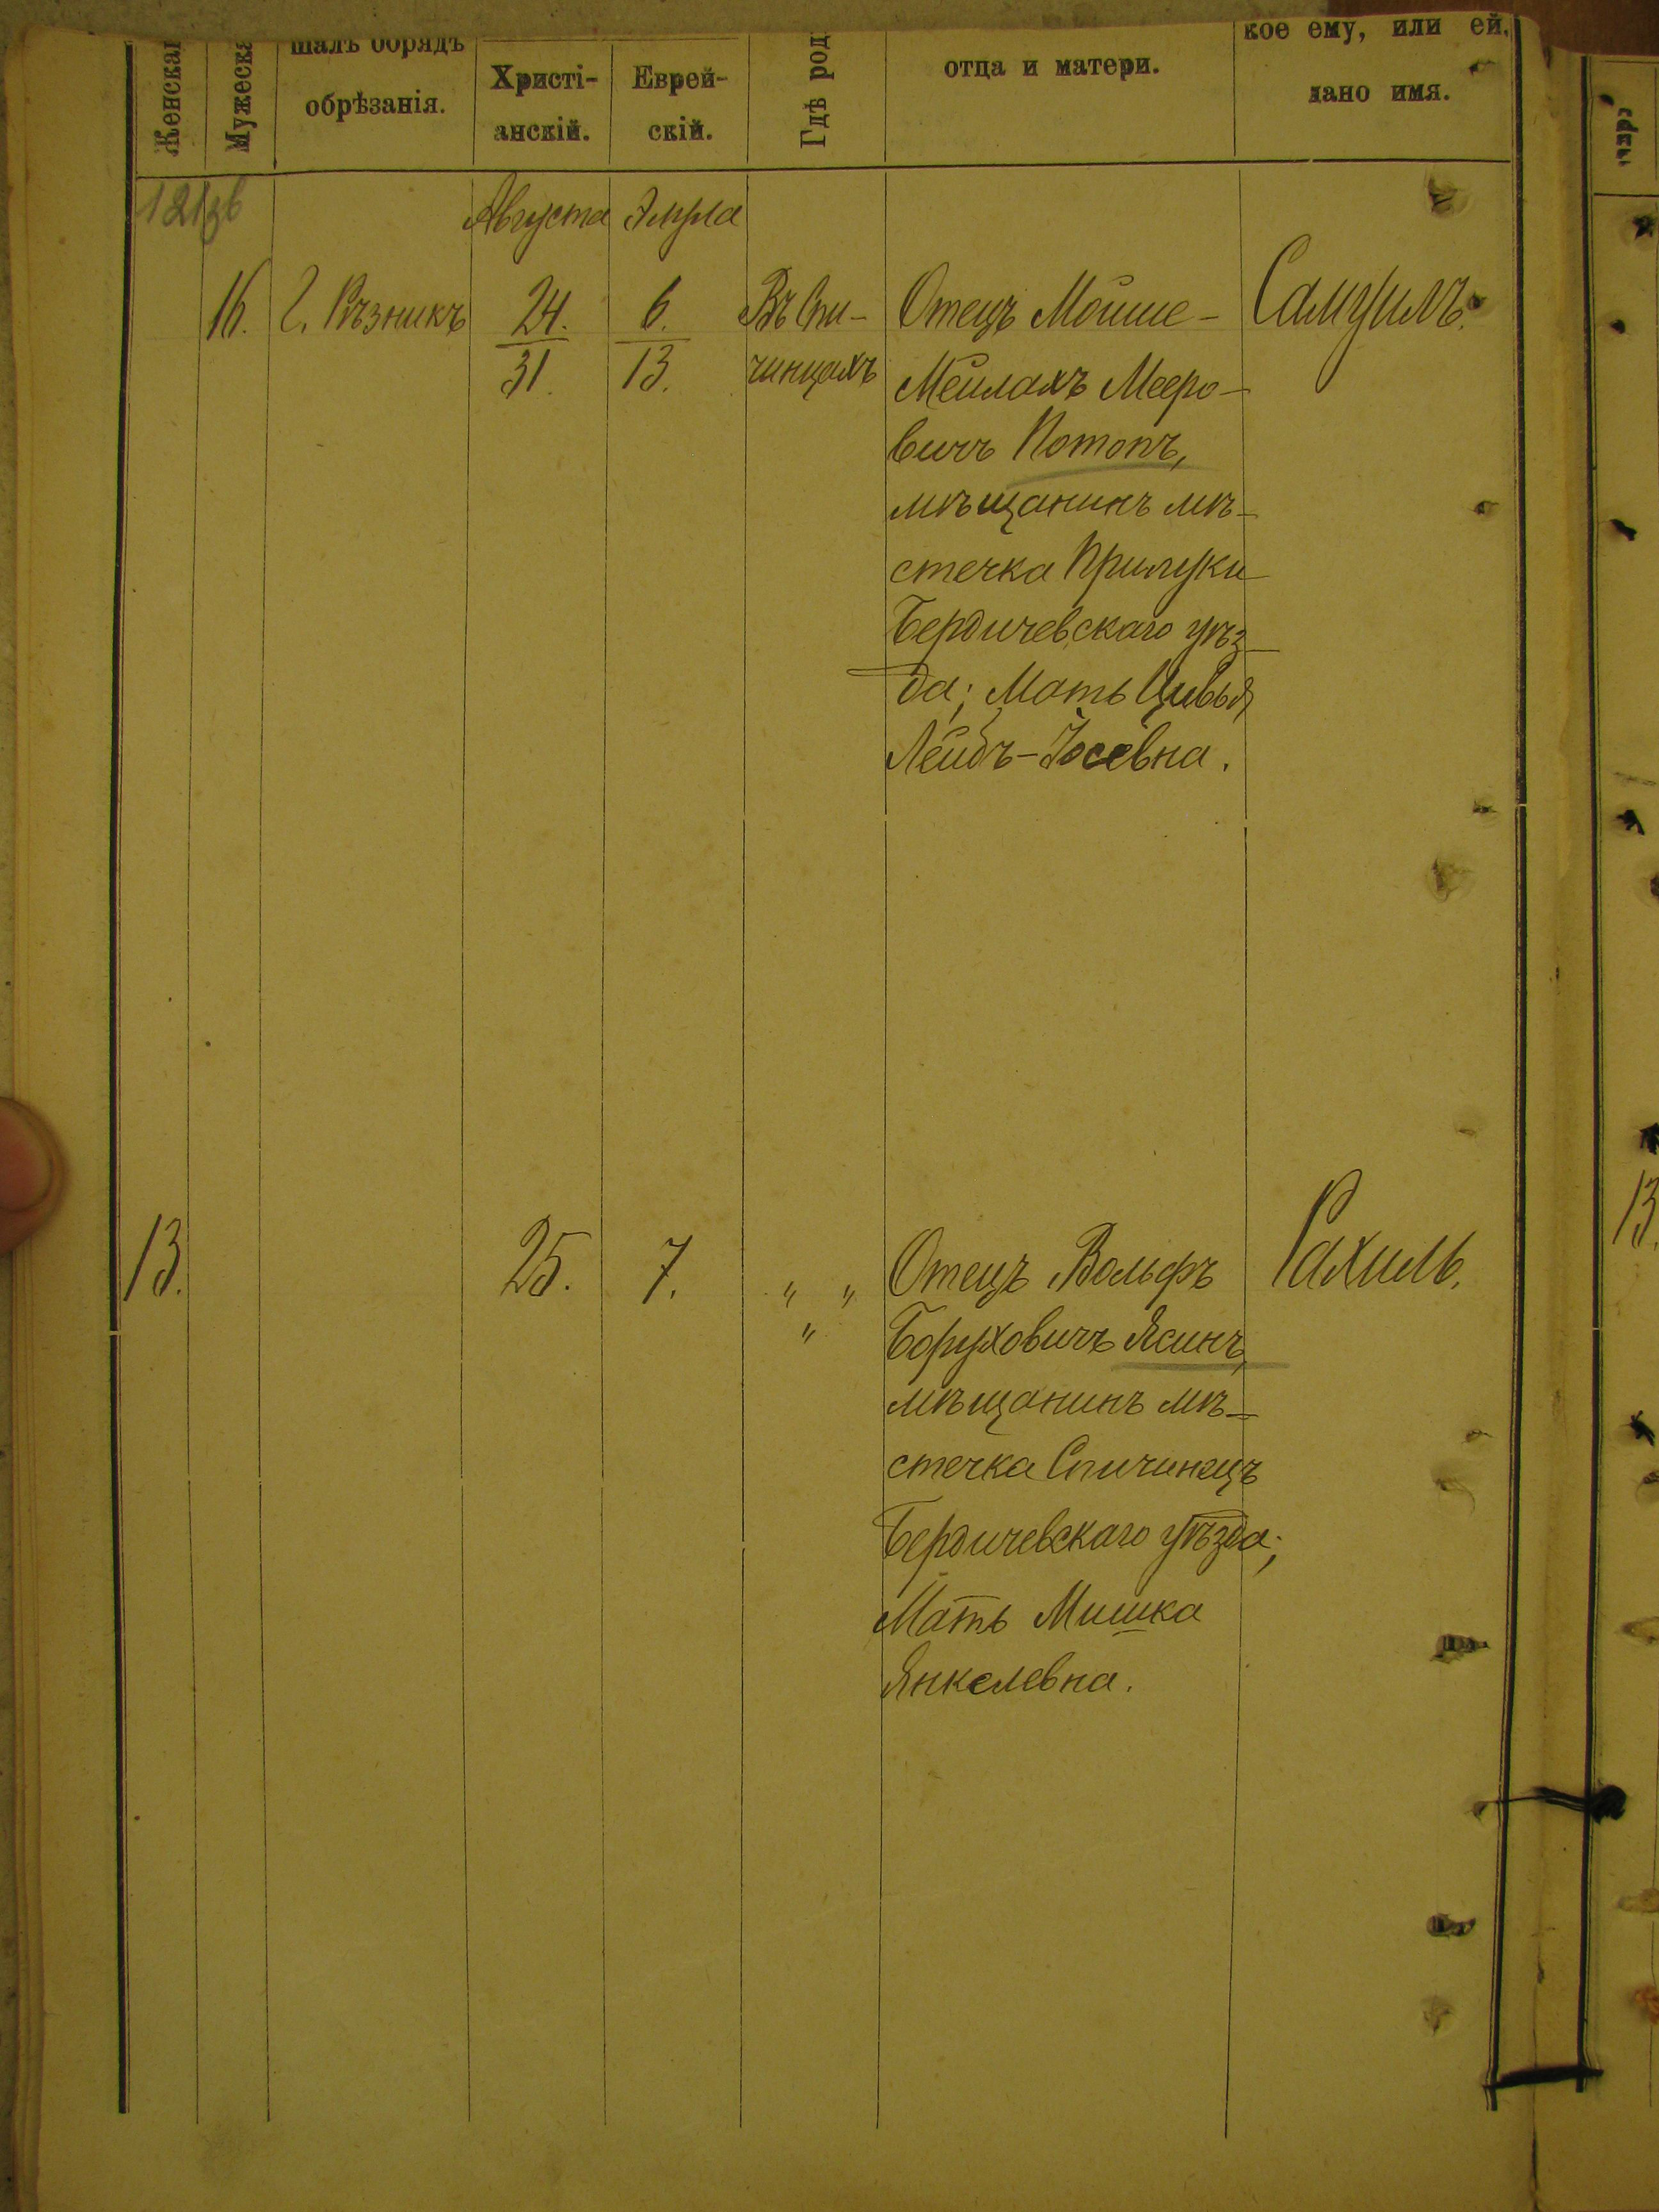 Женская
Мужеска
шалъ обрядъ
обрѣзанія.
Христі-
анскій.
Еврей-
скій.
Гдѣ род
отца и матери.
кое ему, или ей,
дано имя.
Августа Элула
16. Г. Рѣзникъ 24. 6. Въ Спи- Отецъ Мойше- Самуилъ.
31. 13. чинцахъ Мейлахъ Мееро-
вичъ Потопъ,
мѣщанинъ мѣ-
стечка Прилуки
Бердичевскаго уѣз-
да; Мать Цивья
Лейбъ-Іосевна.
13. 25. 7. " " Отецъ Вольфъ Рахиль. 13.
" Боруховичъ Ясинъ,
мѣщанинъ мѣ-
стечка Спичинецъ
Бердичевскаго уѣзда;
Мать Мишка
Янкелевна.